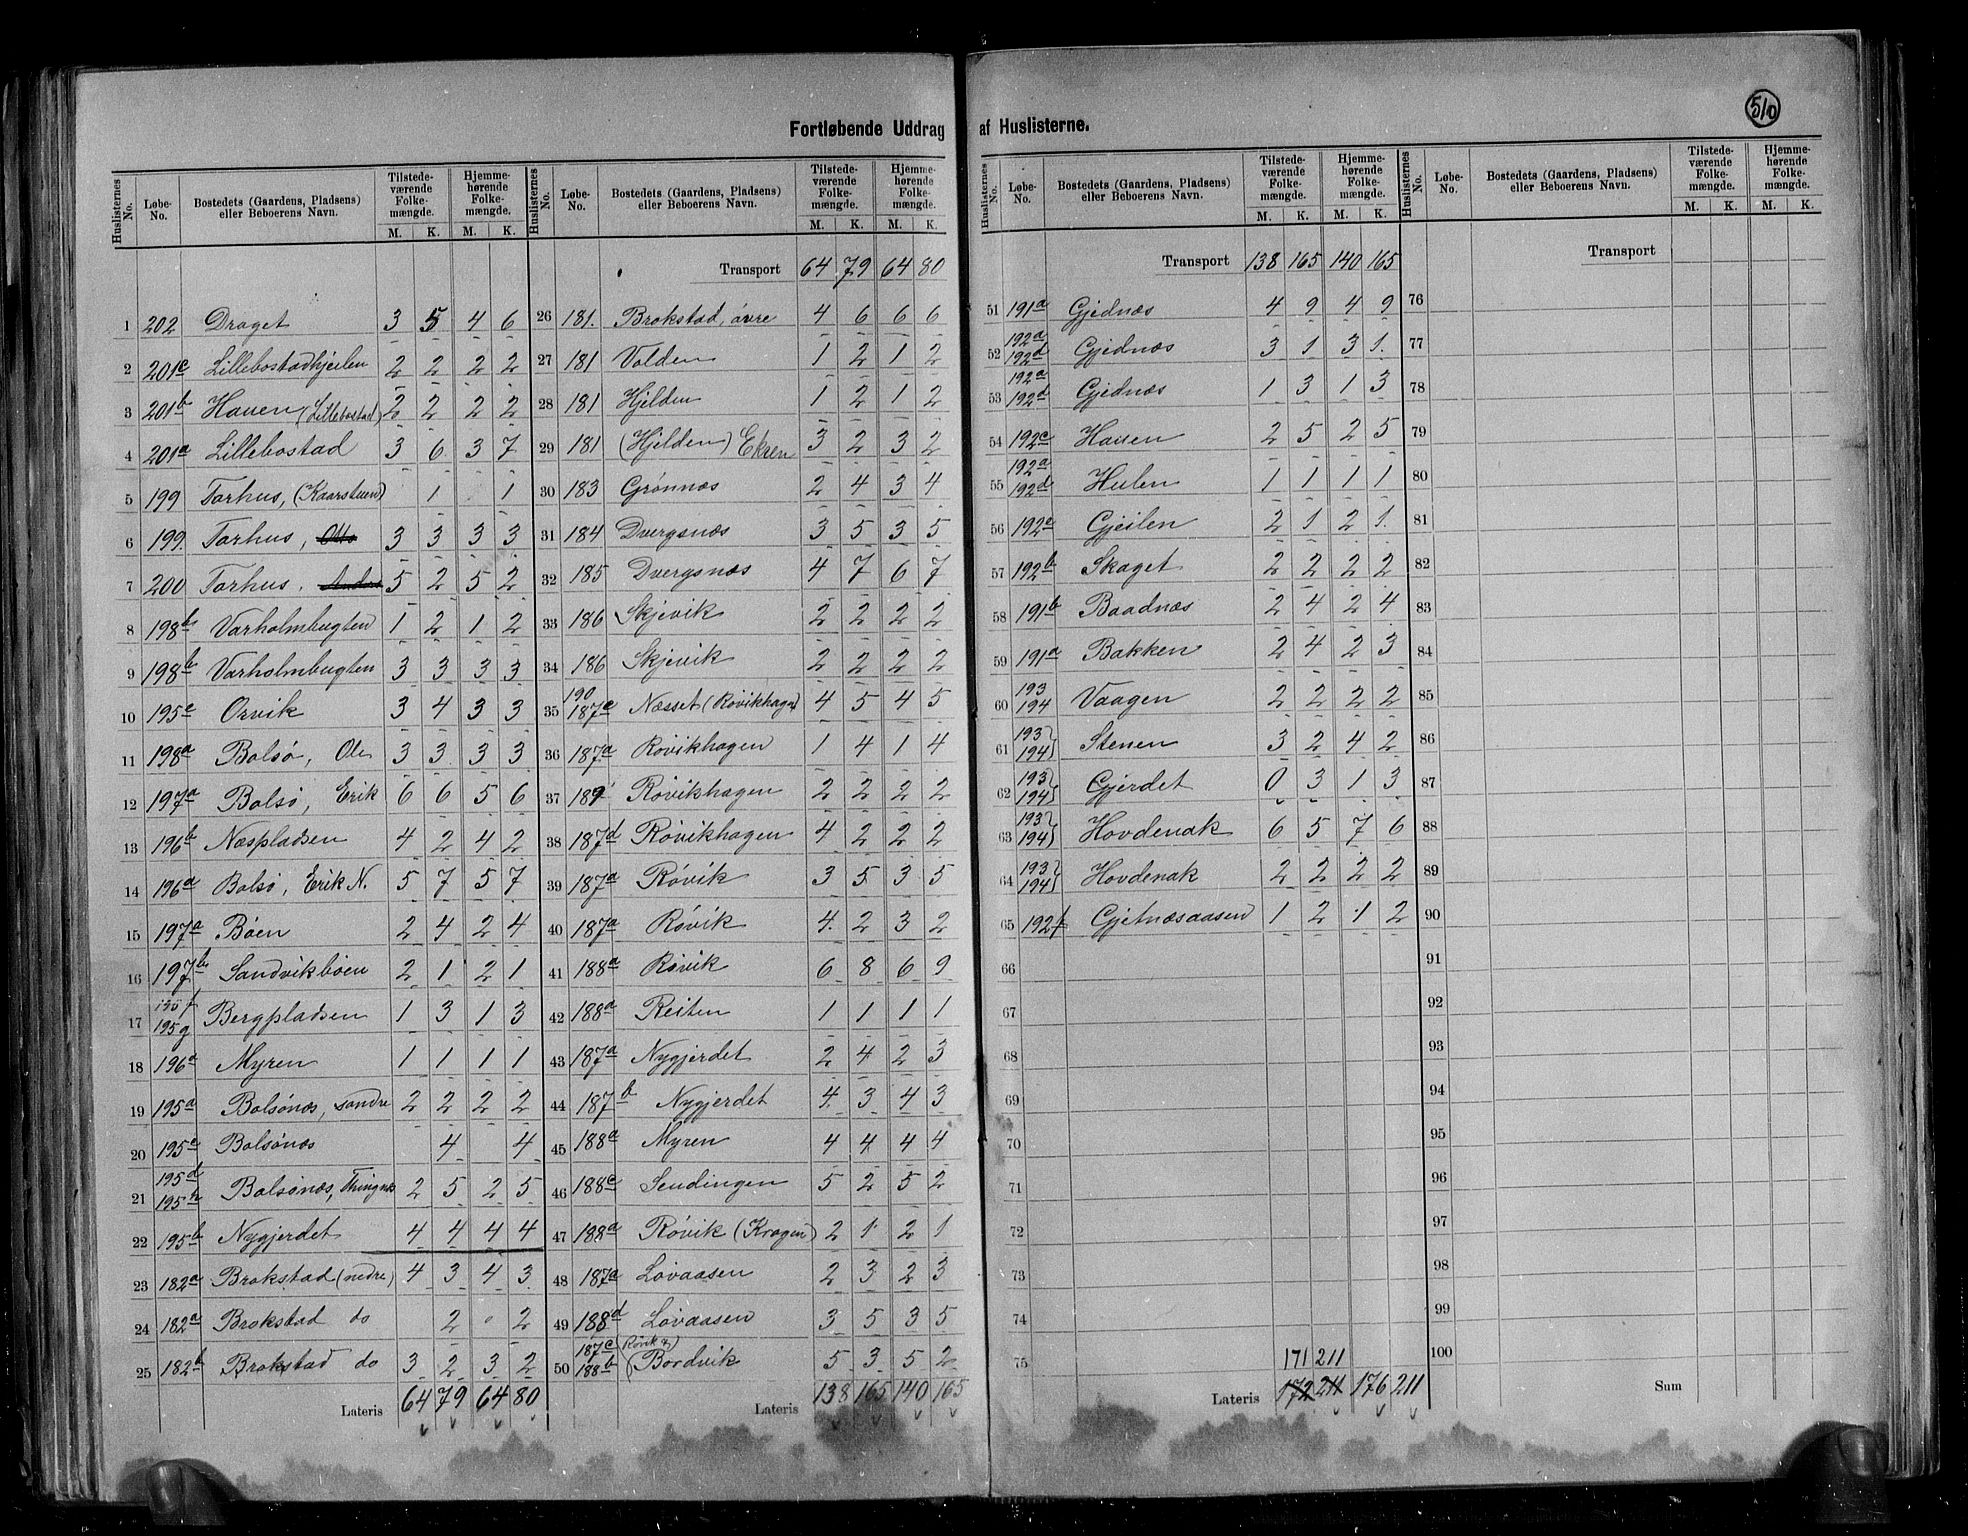 Fortløbende Uddrag af Huslisterne.
510
Huslisternes No. Løbe-No. Bostedets (Gaardens, Pladsens) eller Beboerens Navn. Tilstedeværende Folkemængde. M. K. Hjemmehørende Folkemængde. M. K.
1 202 Draget 3 5 4 6
2 201c Lillebostadhjeilen 2 2 2 2
3 201b Hauen (Lillebostad) 2 2 2 2
4 201a Lillebostad 3 6 3 7
5 199 Torhus, (Kaarstuen) 1 1
6 199. Torhus, Otto 3 3 3 3
7 200 Torhus. 5 2 5 2
8 198b Varholmbugten 1 2 1 2
9 198b Varholmbugten 3 3 3 3
10 195e Orvik 3 4 3 3
11 198a Bolsø, Ole 3 3 3 3
12 197a Bolsø, Erik 6 6 5 6
13 196b Næspladsen 4 2 4 2
14 196a Bolsø, Erik N. 5 7 5 7
15 197a Bøen 2 4 2 4
16 197b Sandvikbøen 2 1 2 1
17 195f 195g Bergpladsen 1 3 1 3
18 196a Myren 1 1 1 1
19 195a Bolsønæs, søndre 2 2 2 2
20 195c Bolsønæs 4 4
21 195d 195h Bolsønæs, Thingnæs 2 5 2 5
22 195b Nygjerdet 4 4 4 4
23 182a Brokstad (nedre) 4 3 4 3
24 182a Brokstad do 2 " 2
25 182b Brokstad do 3 2 3 2
Lateris 64 79 64 80
Huslisternes No. Løbe-No. Bostedets (Gaardens, Pladsens) eller Beboerens Navn. Tilstedeværende Folkemængde. M. K. Hjemmehørende Folkemængde. M. K.
Transport 64 79 64 80
26 181. Brokstad, øvre 4 6 6 6
27 181 Volden 1 2 1 2
28 181 Hjelden 1 2 1 2
29 181 (Hjelden) Ekren 3 2 3 2
30 183 Grønnæs 2 4 3 4
31 184 Dvergsnæs 3 5 3 5
32 185 Dvergsnæs 4 7 6 7
33 186 Skjevik 2 2 2 2
34 186 Skjevik 2 2 2 2
35 190 187e Næsset (Røvikhagen) 4 5 4 5
36 187a Røvikhagen 1 4 1 4
37 189 Røvikhagen 2 2 2 2
38 187d Røvikhagen 4 2 2 2
39 187a Røvik 3 5 3 5
40 187a Røvik 4 2 3 2
41 188a Røvik 6 8 6 9
42 188a Reiten 1 1 1 1
43 187a Nygjerdet 2 4 2 3
44 187b Nygjerdet 4 3 4 3
45 188a Myren 4 4 4 4
46 188c Sendingen 5 2 5 2
47 188a Røvik (Kragen) 2 1 2 1
48 187a Løvaasen 2 3 2 3
49 188d Løvaasen 3 5 3 5
50 187c 188b (Røvik &) Bordvik 5 3 5 2
Lateris 138 165 140 165
Huslisternes No. Løbe-No. Bostedets (Gaardens, Pladsens) eller Beboerens Navn. Tilstedeværende Folkemængde. M. K. Hjemmehørende Folkemængde. M. K.
Transport 138 165 140 165
51 191a Gjednæs 4 9 4 9
52 192a 192d Gjednæs 3 1 3 1.
53 192a 192d Gjednæs 1 3 1 3
54 192c Hauen 2 5 2 5
55 192a 192d Hulen 1 1 1 1
56 192e Gjeilen 2 1 2 1.
57 192b Skaget 2 2 2 2
58 191b Baadnæs 2 4 2 4
59 191a Bakken 2 4 2 3
60 193 194 Vaagen 2 2 2 2
61 193 194 Stenen 3 2 4 2
62 193 194 Gjerdet 0 3 1 3
63 193 194 Hovdenak 6 5 7 6
64 193 194 Hovdenak 2 2 2 2
65 192f Gjetnæsaasen 1 2 1 2
66
67
68
69
70
71
72
73
74
75
171 211
Lateris 172 211 176 211
Huslisternes No. Løbe-No. Bostedets (Gaardens, Pladsens) eller Beboerens Navn. Tilstedeværende Folkemængde. M. K. Hjemmehørende Folkemængde. M. K.
Transport
76
77
78
79
80
81
82
83
84
85
86
87
88
89
90
91
92
93
94
95
96
97
98
99
100
Sum